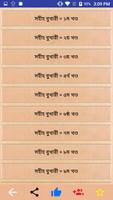 3:09 PM
সহীহ বুখারী » ১ম খণ্ড
সহীহ বুখারী » ২য় খণ্ড
সহীহ বুখারী » ৩য় খণ্ড
সহীহ বুখারী » ৪র্থ খণ্ড
সহীহ বুখারী » ৫ম খণ্ড
সহীহ বুখারী » ৬ষ্ঠ খণ্ড
সহীহ বুখারী » ৭ম খণ্ড
সহীহ বুখারী » ৮ম খণ্ড
সহীহ বুখারী » ৯ম খণ্ড